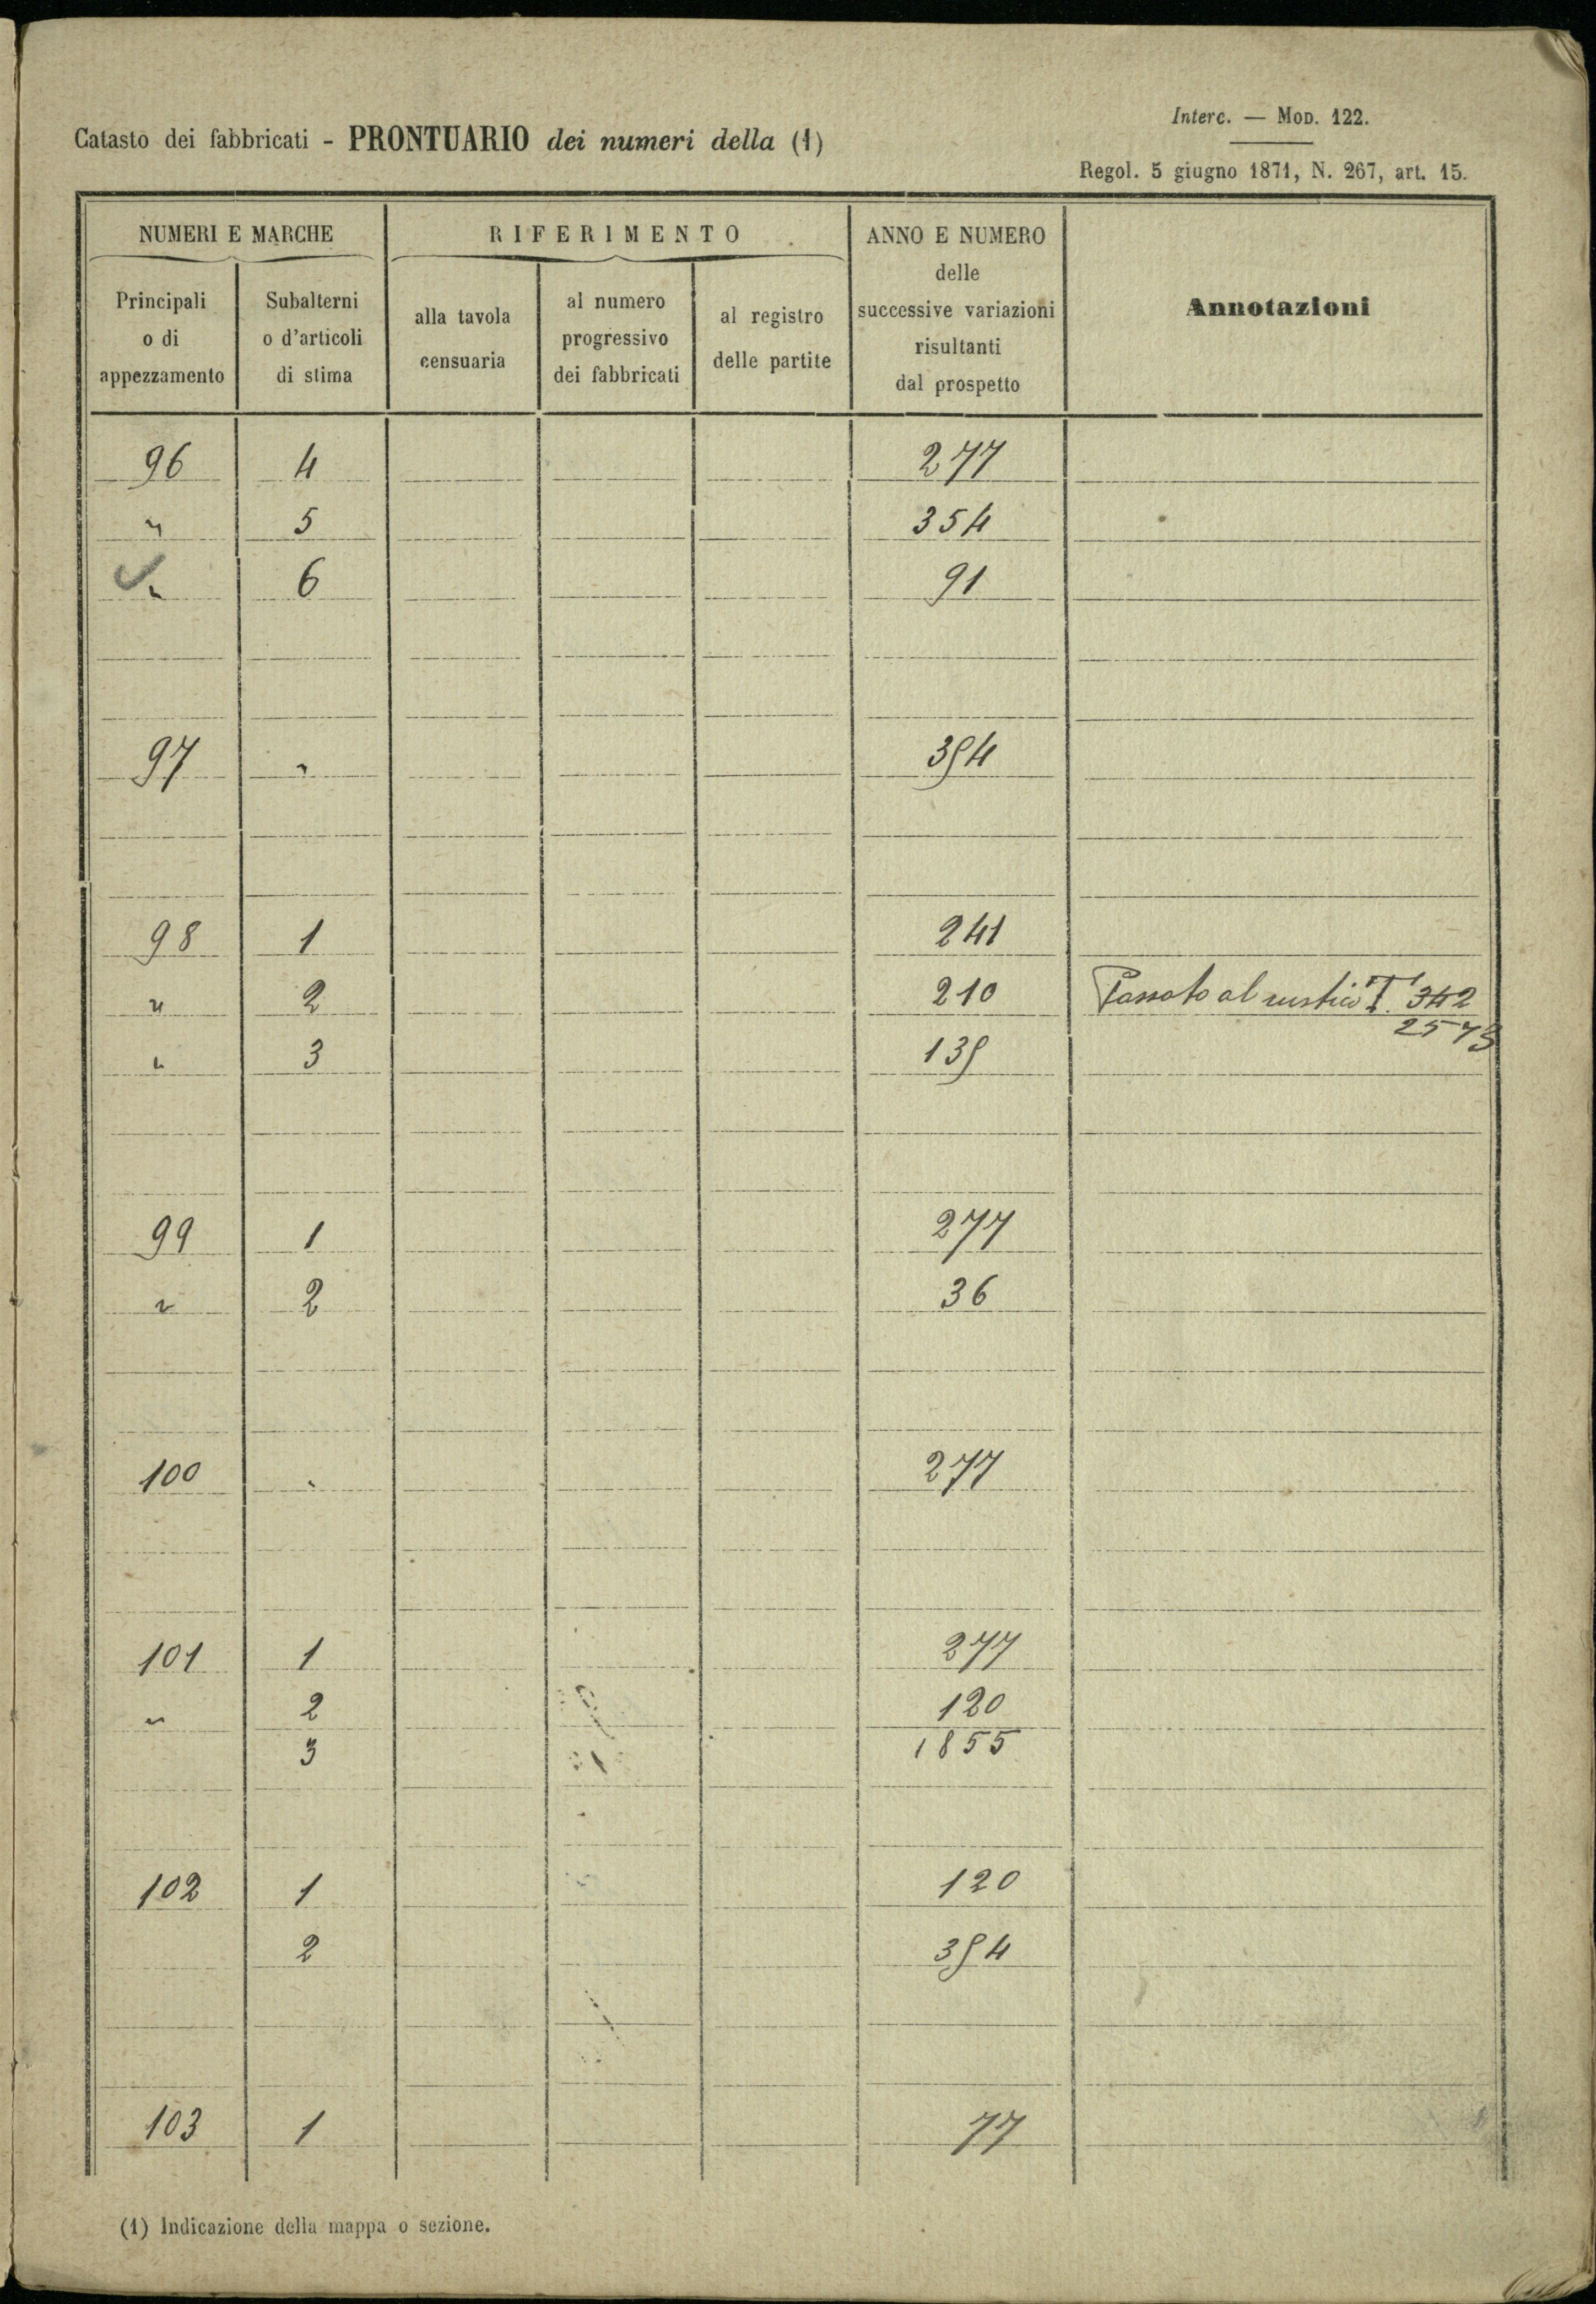 Interc. — Mod. 122.
Catasto dei fabbricati - PRONTUARIO dei numeri della (1)
Regol. 5 giugno 1871, N. 267, art. 15.
NUMERI E MARCHE RIFERIMENTO ANNO E NUMERO delle successive variazioni risultanti dal prospetto Annotazioni
Principali o di appezzamento Subalterni o d'articoli di stima alla tavola censuaria al numero progressivo dei fabbricati al registro delle partite
96 4 277
" 5 354
" 6 91
97 " 354
98 1 241
" 2 210 Passato al rustico T. 342
2573
" 3 135
99 1 277
" 2 36
100 " 277
101 1 277
" 2 120
3 1855
102 1 120
2 354
103 1 77
(1) Indicazione della mappa o sezione.